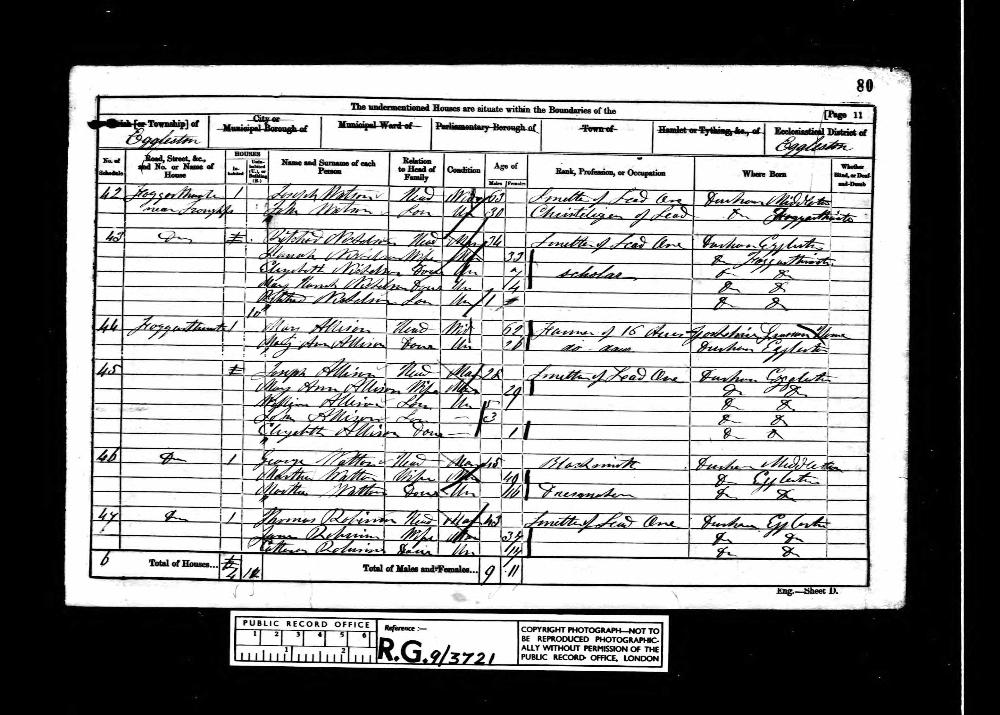 80
The undermentioned Houses are situate within the Boundaries of the
[Page 11
Parish [or Township] of
City or Municipal Borough of
Municipal Ward of
Parliamentary Borough of
Town of
Hamlet or Tything, &c., of
Ecclesiastical District of
Eggleston
Eggleston
No. of Schedule
Road, Street, &c., and No. or Name of House
HOUSES
Inhabited
Name and Surname of each Person
Relation to Head of Family
Condition
Age of
Males Females
Rank, Profession, or Occupation
Where Born
Whether Blind, or Deaf-and-Dumb
42 1 Joseph Watson Head 63 Smelter of Lead Ore Durham Middleton
John Watson Son Un 30 of Lead Do
43 Do Head Mar 34 Smelter of Lead Ore Durham Eggleston
Hannah Wife Mar 33 Do
Elizabeth Nicholson Daur Un 7 scholar Do Do
Mary Hannah Nicholson Daur Un 4 Do Do
Nicholson Son Un 1 Do Do
44 1 Mary Allison Head Wid 62 Farmer of 16 Acres Yorkshire
Mary Ann Allison Daur Un 26 Durham Eggleston
45 Joseph Allison Head Mar 28 Smelter of Lead Ore Durham Eggleston
Mary Ann Allison Wife Mar 29 Do Do
William Allison Son Un 5 Do Do
John Allison Son 3 Do Do
Elizabeth Allison Daur 1 Do Do
46 Do 1 George Watton Head Mar 45 Blacksmith Durham Middleton
Martha Watton Wife Mar 49 Do Eggleston
Martha Watton Daur Un 16 Dressmaker Do Do
47 Do 1 Thomas Robinson Head Mar 43 Smelter of Lead Ore Durham Eggleston
Jane Robinson Wife Mar 34 Do Do
Robinson Daur Un 14 Do Do
6 Total of Houses... 4 Total of Males and Females... 9 11
Eng.—Sheet D.
PUBLIC RECORD OFFICE
1 2 3 4 5 6
1 2
Reference :—
R.G. 9/3721
COPYRIGHT PHOTOGRAPH—NOT TO
BE REPRODUCED PHOTOGRAPHIC-
ALLY WITHOUT PERMISSION OF THE
PUBLIC RECORD OFFICE, LONDON